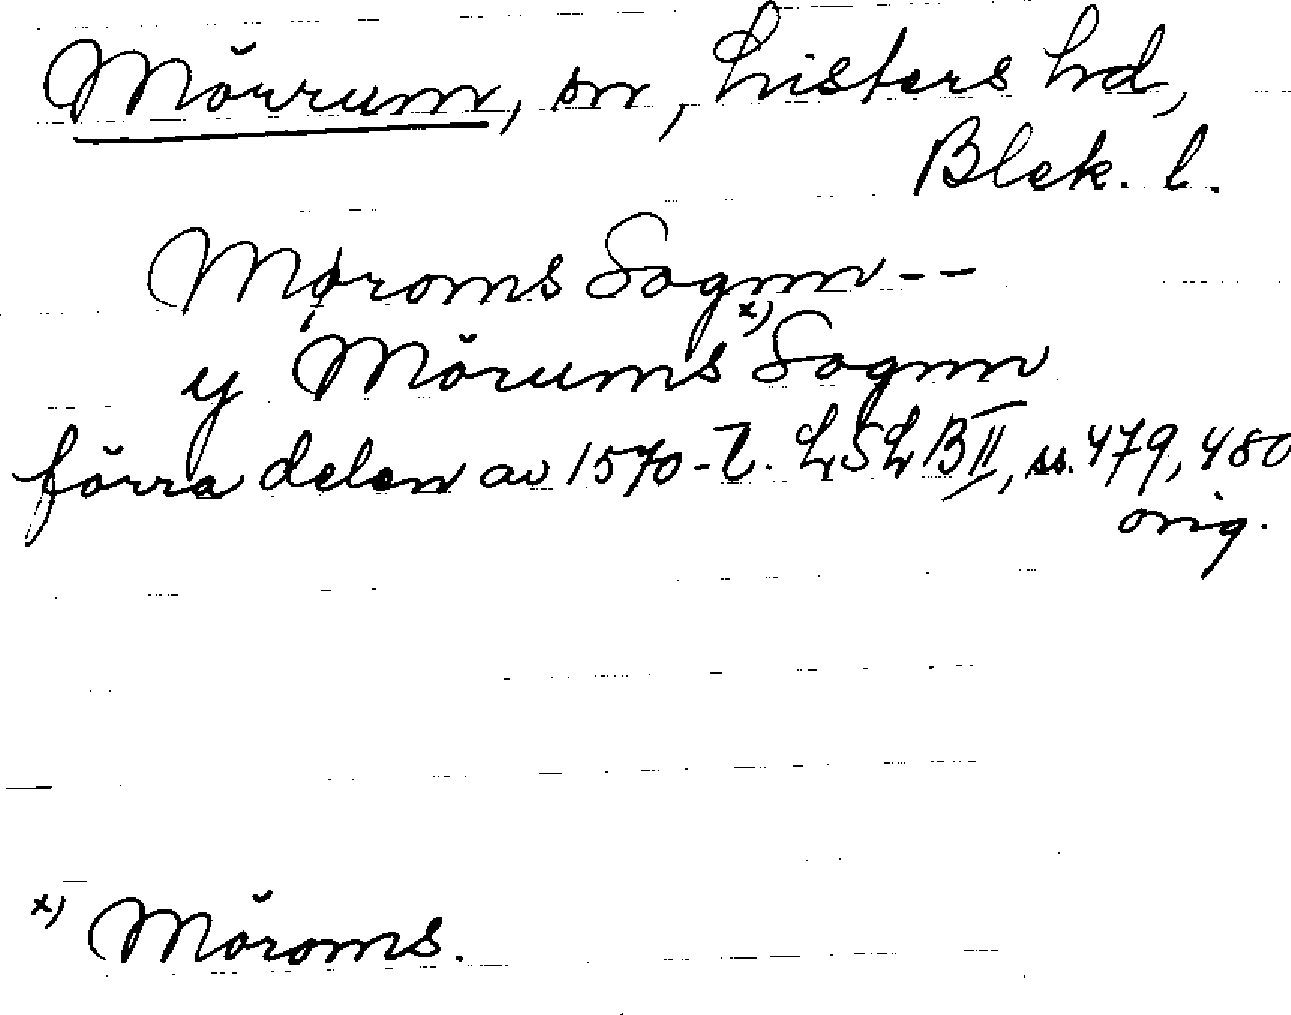 Mörrum, sn, Listers hd,
Blek. l.
Møroms Sognn --
y Mörums x) Sognn
förra delen av 1570-t. LSLB II, ss. 479, 480
orig.
x) Möroms.